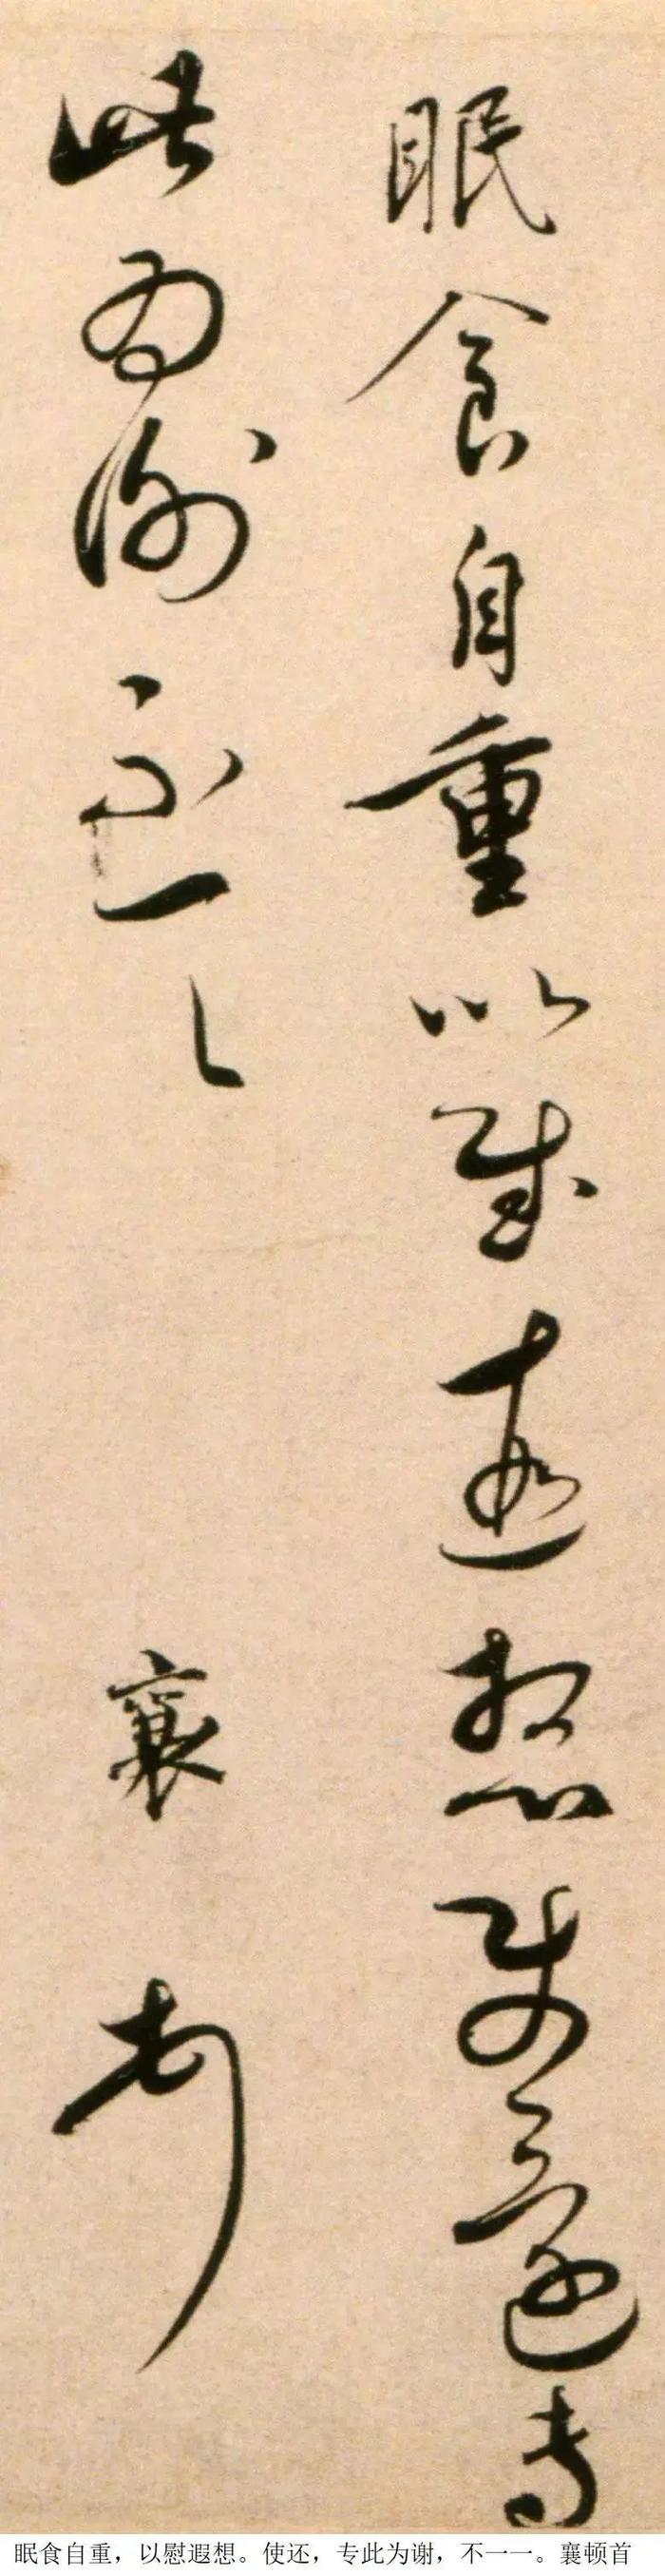 眠食自重以慰遐想使还专
此为谢不一一 襄顿首
眠食自重，以慰遐想。使还，专此为谢，不一一。襄顿首